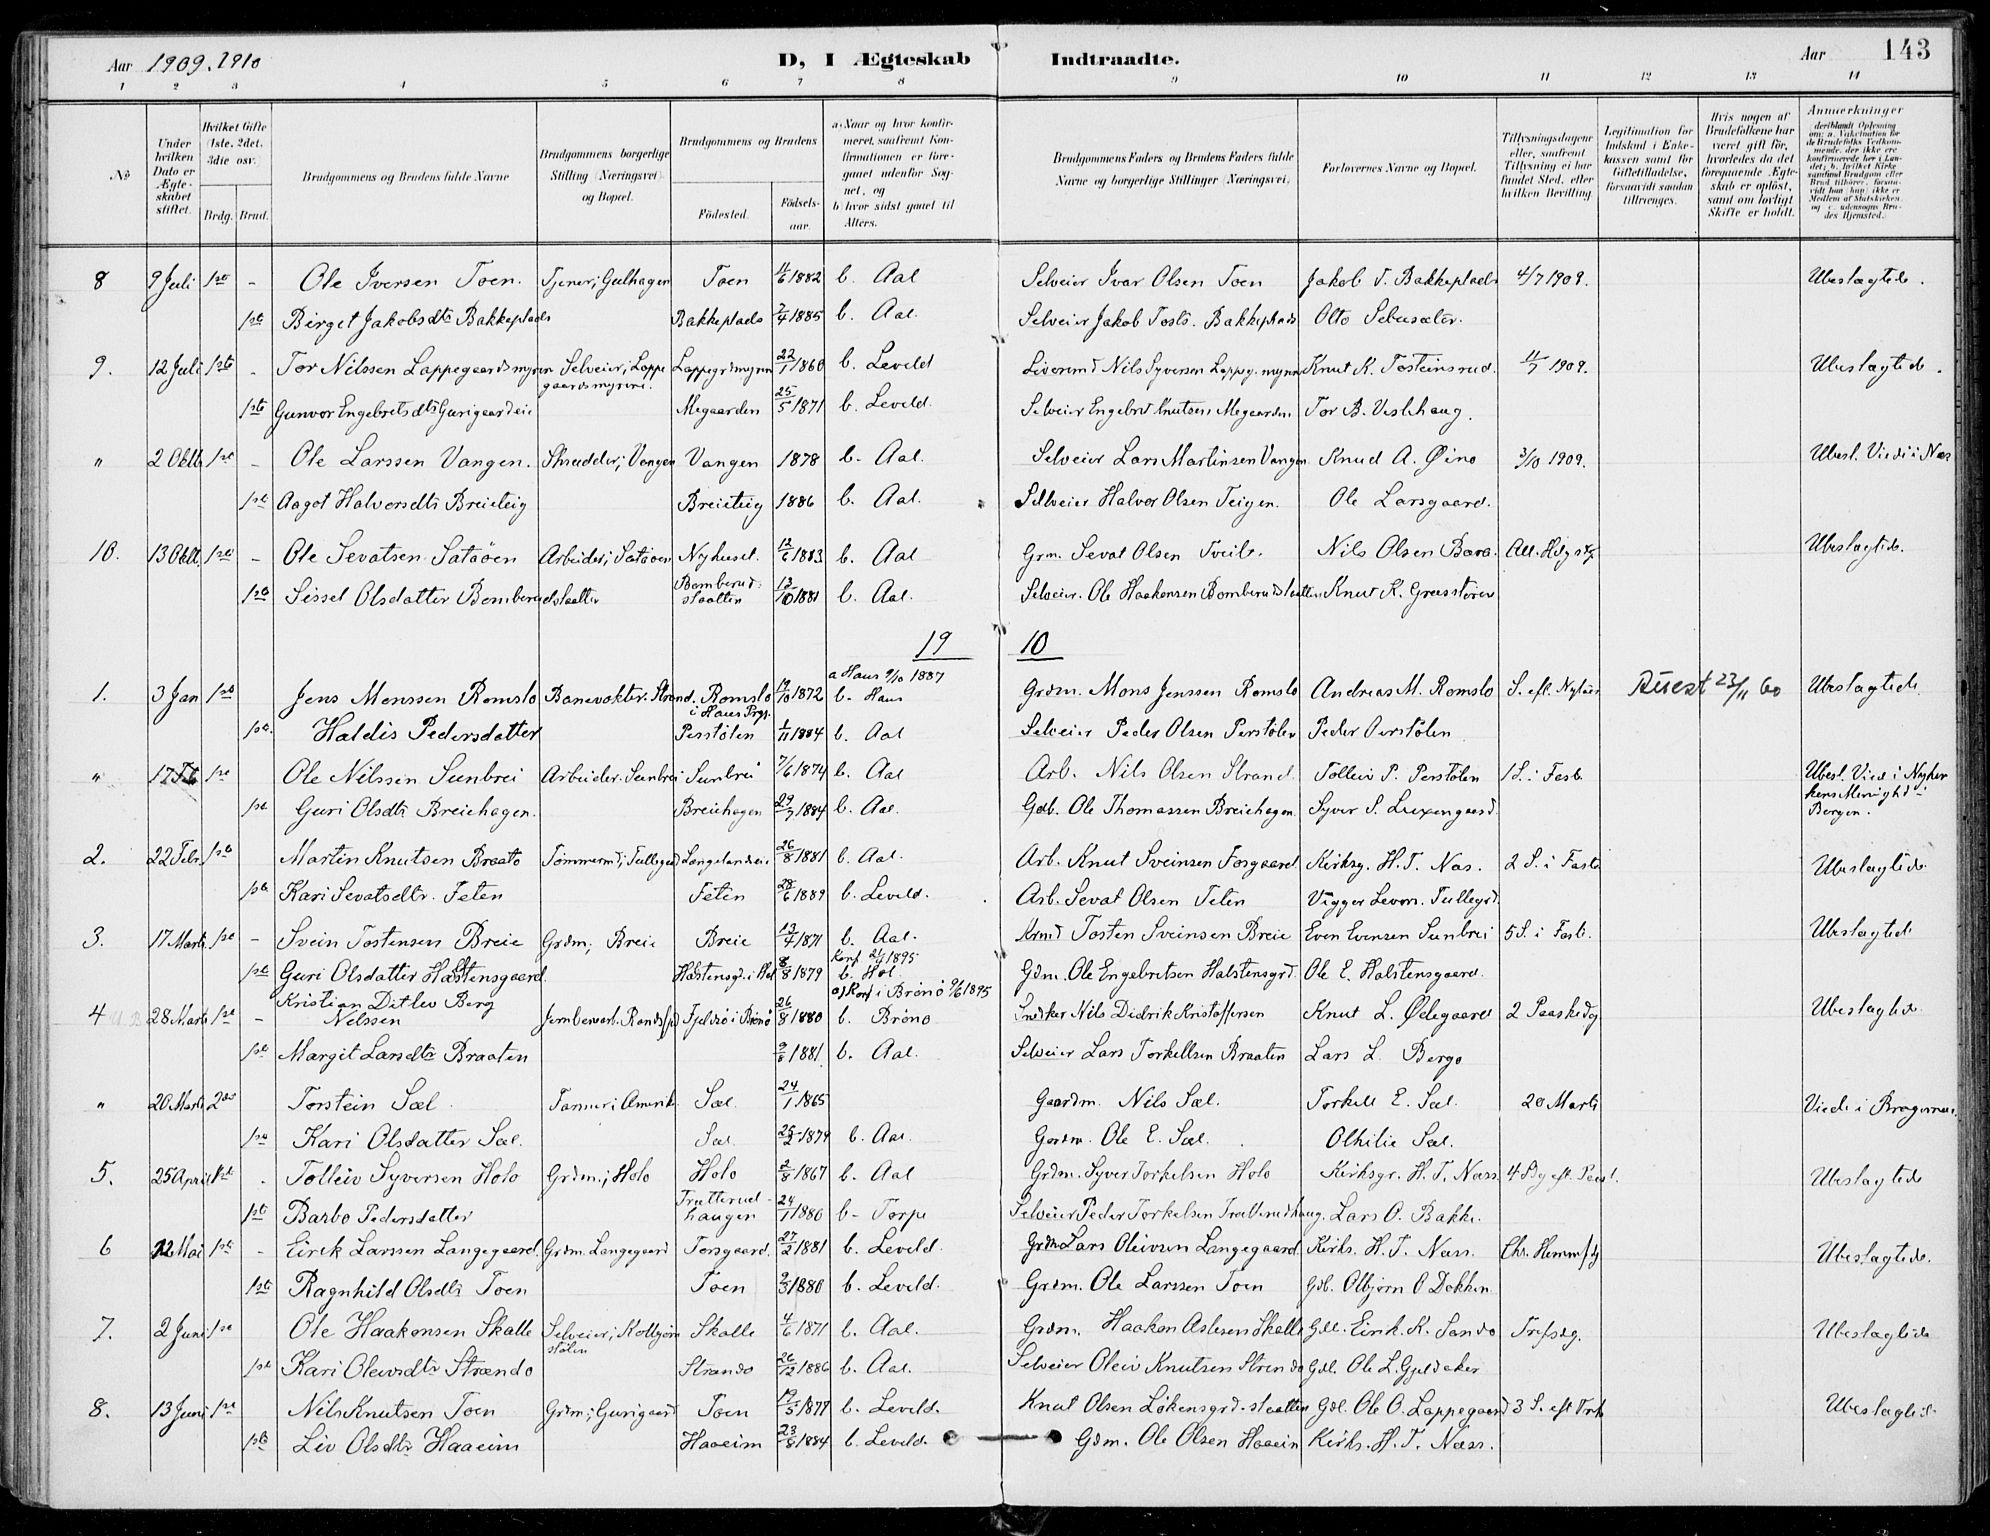 Aar 1909.1910
D, I Ægteskab Indtraadte.
Aar 143
1 2 3 4 5 6 7 8 9 10 11 12 13 14
No
Under hvilken Dato er Ægteskabet stiftet.
Hvilket Gifte (1ste. 2det. 3die osv.
Brdg. Brud.
Brudgommens og Brudens fulde Navne
Brudgommens borgerlige Stilling (Næringsvei) og Bopæl.
Brudgommens og Brudens
Födested.
Födselsaar.
a) Naar og hvor konfirmeret, saafremt Konfirmationen er foregaaet udenfor Sognet, og
b) hvor sidst gaaet til Alters.
Brudgommens Faders og Brudens Faders fulde Navne og borgerlige Stillinger (Næringsvei)
Forlovernes Navne og Bopæl.
Tillysningsdagene eller, saafremt Tillysning ei har fundet Sted, efter hvilken Bevilling.
Legitimation for Indskud i Enkekassen samt for Giftetilladelse, forsaavidt saadan tiltrænges.
Hvis nogen af Brudefolkene har været gift för, hvorledes da det foregaaende Ægteskab er oplöst, samt om lovligt Skifte er holdt.
Anmærkninger
8 9 Juli 1ste - Ole Iversen Toen. Tjener; Gulhagen Toen 11/6 1882 b. Aal Selveier Ivar Olsen Toen Jakob T. Bakkeplads 4/7 1909. Ubeslægtede.
1ste Birget Jakobsdtr Bakkeplads Bakkeplads 7/4 1885 b. Aal. Selveier Jakob Tosts. Bakkeplads Otto Sebusæter.
9. 12 Juli 1ste - Tor Nilssen Lappegaardsmyren Selveier; Lappegaardsmyren. Lappegrdmyren 22/1 1860 b. Leveld Nils Syversen Lappg. myren Knut K. Tosteinsrud. 11/7 1909. Ubeslægtede.
1ste Gunvor Engebretsdtr Gurigaardeie Megaarden 25/5 1871 b. Leveld. Selveier Engebret Knutsen Megaarden Tor B. Veslehaug.
" 2 Oktb 1ste - Ole Larssen Vangen. Skrædder; Vangen Vangen 1878 b. Aal. Selveier Lars Martinsen Vangen Knud A. Øino 3/10 1909. Ubesl. Viedi i Næs
1ste Aagot Halvorsdtr Breieteig Breieteig 1886 b. Aal. Selveier Halvor Olsen Teigen. Ole Larsgaard.
10. 13 Okt. 1ste - Ole Sevatsen Sataøen Arbeider; Sataøen Nyhusel. 12/6 1883 b. Aal Grm. Sevat Olsen Tveito. Nils Olsen Bara. All. Helgsdg Ubeslægtede.
1ste Sissel Olsdatter Bomberudslaatten Bomberudslaatten 13/10 1881 b. Aal. Selveier. Ole Haakensen Bomberudslaatten Knut K. Græsstøren
19 10
1. 3 Jan 1ste Jens Monssen Romslo Banevokter. Strand. Romslo i Haus Prgj. 19/10 1872 a Haus 9/10 1887 b. Haus Grdm. Mons Jenssen Romslo Andreas M. Romslo S. eft. Nytaar Attest 23/11 60 Ubeslægtede.
1ste. Haldis Pedersdatter Perstølen 1/11 1884 b. Aal Selveier Peder Olsen Perstølen Peder Perstølen
" 17 Feb 1ste Ole Nilssen Sunbrei Arbeider. Sunbrei Sunbrei 7/6 1874 b. Aal Arb. Nils Olsen Strand Tolleiv P. Perstølen 1 S. i Faste Ubesl. Vied i Nykirkens Menighd i Bergen.
1ste Guri Olsdtr Breiehagen. Breiehagen 29/7 1884 b. Aal. Gdb. Ole Thomassen Breiehagen. Syver S. Luxengaard.
2. 22 Febr. 1ste Martin Knutsen Braato Tømmermd; Tullegrd Langelandseie 26/8 1881 b. Aal. Arb. Knut Sveinsen Torsgaard Kirksg. H. T. Næs. 2 S. i Faste Ubeslægtede
1ste Kari Sevatsdtr. Feten Feten 28/6 1889 b. Leveld. Arb. Sevat Olsen Feten Vigger Levors. Tullegrd.
3. 17 Marts 1ste - Svein Tostensen Breie Grdm; Breie Breie 13/4 1871 b. Aal. Krmd Tosten Sveinsen Breie Even Evensen Sunbrei 5 S. i Faste. Ubeslægtede
1ste Guri Olsdatter Halstensgaard Halstensgd. i Hol 8/8 1879 Konf 1895 b. Hol. Gdm. Ole Engebretsen Halstensgrd. Ole E. Halstensgaard.
4 28 Marts 1ste - Kristian Ditlev Berg Nilssen Jernbanearb. Randsfjd Fjeldsø i Brønø 26/8 1880 a) Konf i Brønø 9/6 1895 b. Brønø Snedker Nils Didrik Kristoffersen Knut L. Ødegaard 2 Paaskedg Ubeslægtede
1ste Margit Larsdtr Braaten 9/6 1881. b. Aal. Selveier Lars Torkellsen Braaten Lars L. Bergo
" 20 Marts 2det Torstein Sæl Farmer i Amerik. Sæl. 24/1 1865 Gaardm. Nils Sæl. Torkell E. Sæl. 20 Marts Viede i Bragernæs.
1ste Kari Olsdatter Sæl. Sæl 25/2 1879 b. Aal. Gaardm. Ole E. Sæl. Othilie Sæl.
5. 25 April 1ste - Tolleiv Syversen Holo Grdm.; Holo Holo 2/8 1867 b. Aal Grdm. Syver Torkelsen Holo Kirksgr. H. T. Næss. 4 Sdg eft. Paask. Ubeslægtede
1ste Barbo Pedersdatter Trætterudhaugen 24/1 1880 b- Torpe Selveier Peder Torkelsen Trætterudhaug. Lars O. Bakke.
6 12 Mai 1ste - Eirik Larssen Langegaard. Grdm. Langegaard Torsgaard. 27/2 1881 b. Leveld. Grdm Lars Oleivsen Langegaard Kirks. H. T. Næss. Chr. Hemmfdg Ubeslægtede.
1ste Ragnhild Olsdtr Toen Toen 9/3 1880 b. Leveld. Grdm. Ole Larssen Toen Gdb. Olbjørn O Dokken
7. 2 Juni 1ste Ole Haakensen Skalle Selveier; Kolbjørnstølen Skalle 4/6 1871 b. Aal. Grdm. Haaken Aslesen Skalle Gdb. Eirik K. Sando Trefsdg. Ubeslægtede
1ste Kari Oleivsdtr Strændo Strændo 26/12 1886 b. Aal. Selveier Oleiv Knutsen Strendo Gdb. Ole L. Gjeldaker
8. 13 Juni 1ste Nils Knutsen Toen Grdm; Gurigaard Toen 19/5 1877 b. Leveld. Knut Olsen Løkensgrd-slaatten Gdb. Ole O. Lappegaard 3 S. eft Tref Ubeslægtede
1ste Liv Olsdtr Haaeim Haaeim 23/8 1884 b. Leveld. Gdm. Ole Olsen Haaeim Kirks. H. T. Næss.